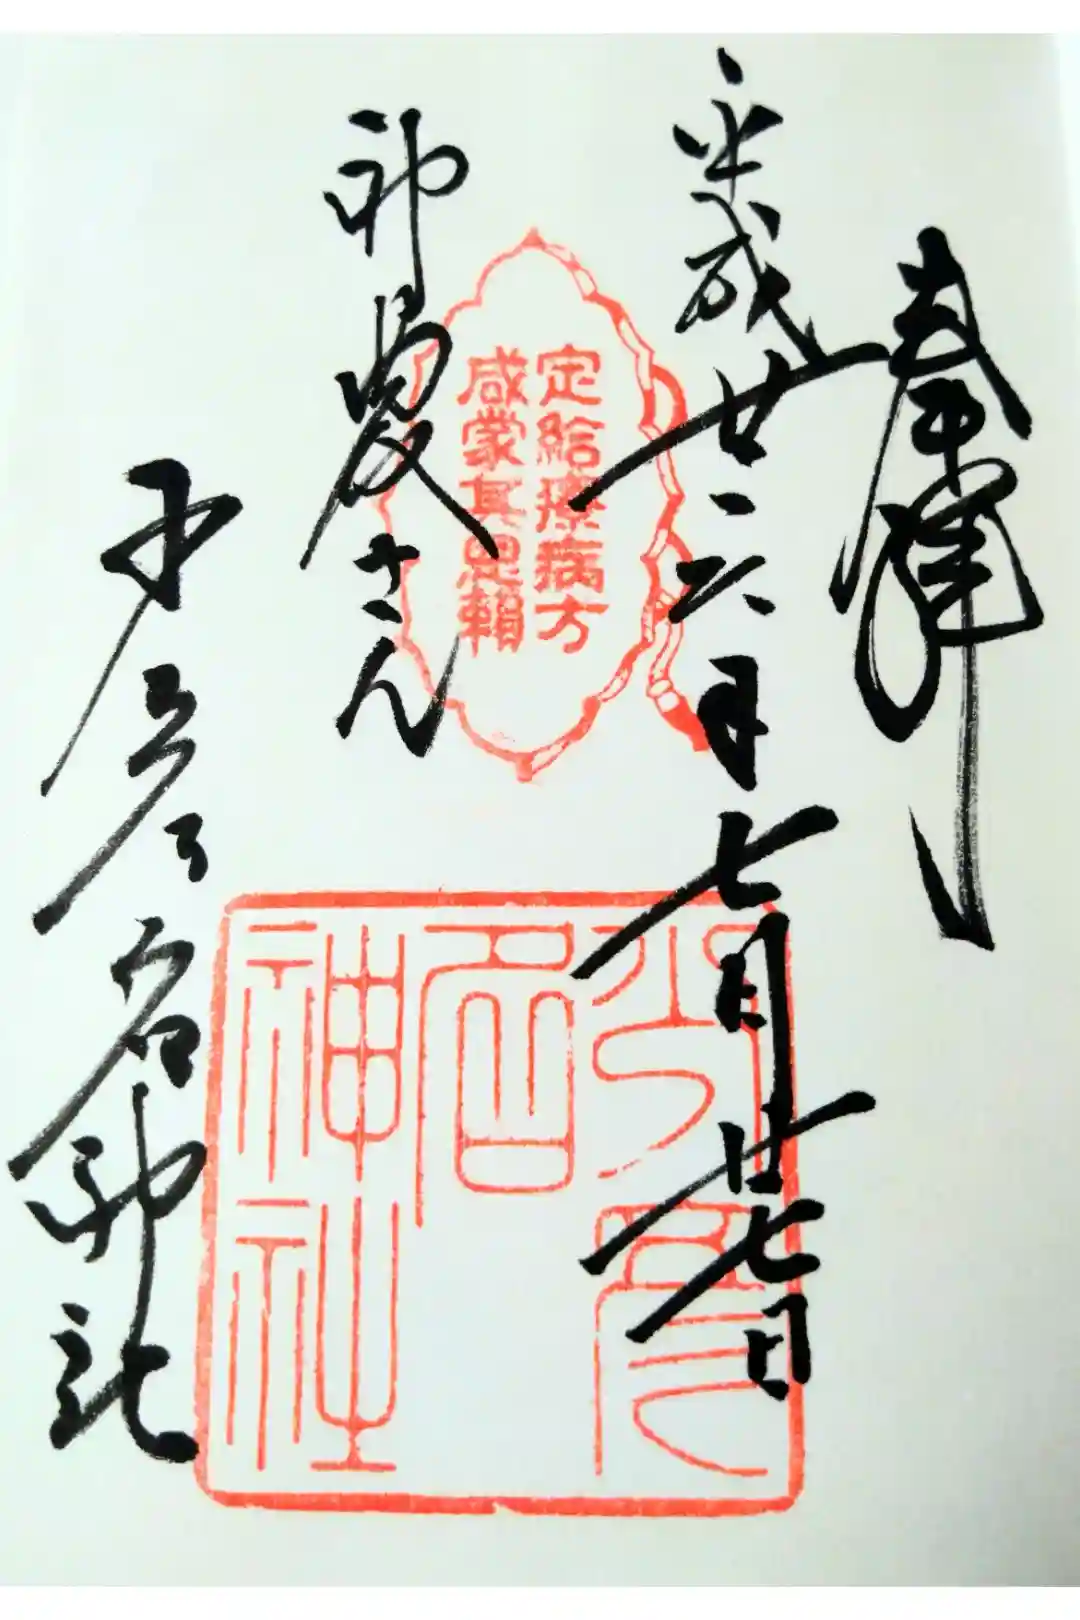 奉拝
平成廿六年七月廿七日
定給療病方
咸蒙其恩賴
神農さん
少彦名神社
少彦
名
神社